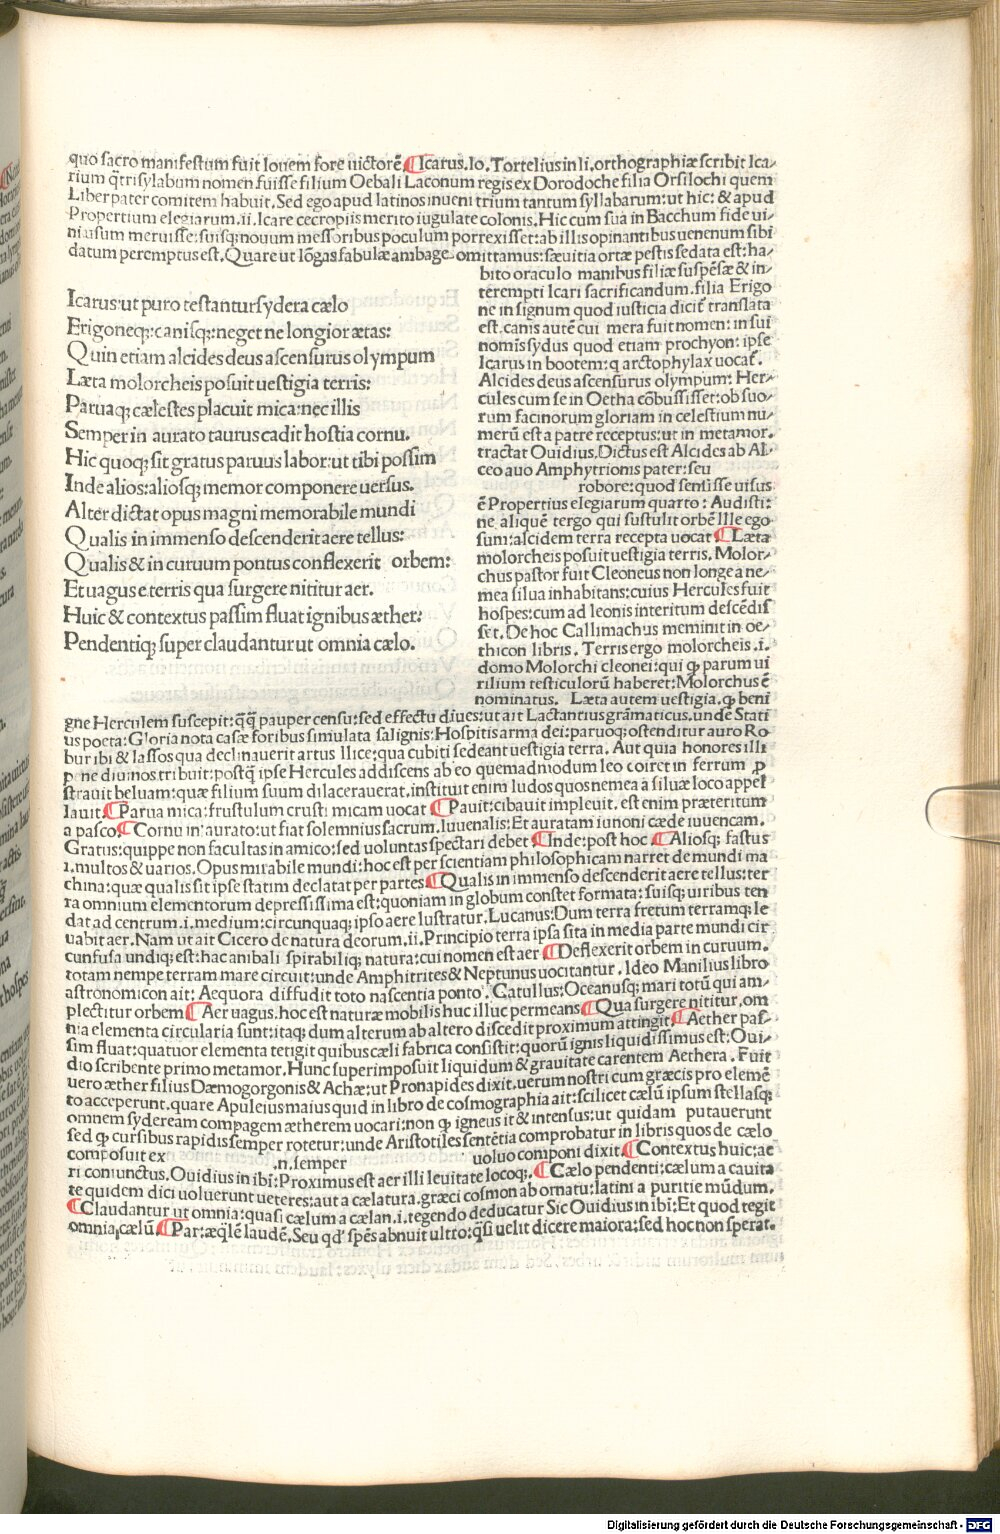 quo sacro manifestum fuit Iouem fore uictorē ¶Icarus. Io. Tortelius in li. orthographiæ scribit Ica/
rium q̄trisylabum nomen fuisse filium Oebali Laconum regis ex Dorodoche filia Orsilochi quem
Liber pater comitem habuit. Sed ego apud latinos inueni trium tantum syllabarum: ut hic: & apud
Propertium elegiarum. ii. Icare cecropiis merito iugulate colonis. Hic cum sua in Bacchum fide ui/
ni usum meruisse: suisq; nouum messoribus poculum porrexisset: ab illis opinantibus uenenum sibi
datum peremptus est. Quare ut lōgas fabulæ ambage omittamus: sæuitia ortæ pestis sedata est: ha/
bito oraculo manibus filiæ suspēsæ & in/
terempti Icari sacrificandum. filia Erigo
ne in signum quod iusticia dicit̄ translata
est. canis autē cui mera fuit nomen: in sui
nomis sydus quod etiam prochyon: ipse
Icarus in bootem: q arctophylax uocat̄.
Alcides deus ascensurus olympum: Her/
cules cum se in Oetha cōbussisset: ob suo/
rum facinorum gloriam in celestium nu/
merū est a patre receptus: ut in metamor.
tractat Ouidius. Dictus est Alcides ab Al
ceo auo Amphytrionis pater: seu
robore: quod sensisse uisus
ē Propertius elegiarum quarto: Audisti:
ne aliquē tergo qui sustulit orbē Ille ego
sum: alcidem terra recepta uocat ¶Læta
molorcheis posuit uestigia terris. Molor/
chus pastor fuit Cleoneus non longe a ne/
mea silua inhabitans: cuius Hercules fuit
hospes: cum ad leonis interitum descēdis
set. De hoc Callimachus meminit in oe/
thicon libris. Terris ergo molorcheis .i.
domo Molorchi cleonei: qui ꝙ parum ui
rilium testiculorū haberet: Molorchus ē
nominatus. Læta autem uestigia. ꝙ beni
Icarus: ut puro testantur sydera cælo
Erigoneq;: canisq;: neget ne longior ætas:
Quin etiam alcides deus ascensurus olympum
Læta molorcheis posuit uestigia terris:
Paruaq; cælestes placuit mica: nec illis
Semper in aurato taurus cadit hostia cornu.
Hic quoq; sit gratus paruus labor: ut tibi possim
Inde alios: aliosq; memor componere uersus.
Alter dictat opus magni memorabile mundi
Qualis in immenso descenderit aere tellus:
Qualis & in curuum pontus conflexerit orbem:
Et uagus e terris qua surgere nititur aer.
Huic & contextus passim fluat ignibus æther:
Pendentiq; super claudantur ut omnia cælo.
gne Herculem suscepit: q̄q̄ pauper censu: sed effectu diues: ut ait Lactantius grāmaticus. unde Stati
us poeta: Gloria nota casæ foribus simulata salignis: Hospitis arma dei: paruoq; ostenditur auro Ro
bur ibi & lassos qua declinauerit artus Ilice: qua cubiti sedeant uestigia terra. Aut quia honores illi
ꝓ ne diuinos tribuit: postq̄ ipse Hercules addiscens ab eo quemadmodum leo coiret in ferrum ꝓ
strauit beluam: quæ filium suum dilacerauerat, instituit enim ludos quos nemea a siluæ loco appel
lauit. ¶Parua mica: frustulum crusti micam uocat ¶Pauit: cibauit impleuit. est enim præteritum
a pasco ¶Cornu in aurato: ut fiat solemnius sacrum. Iuuenalis: Et auratam iunoni cæde iuuencam.
Gratus: quippe non facultas in amico: sed uoluntas spectari debet ¶Inde: post hoc ¶Aliosq; fastus
.i. multos & uarios. Opus mirabile mundi: hoc est per scientiam philosophicam narret de mundi ma
china: quæ qualis sit ipse statim declatat per partes ¶Qualis in immenso descenderit aere tellus: ter
ra omnium elementorum depressissima est: quoniam in globum constet formata: suisq; uiribus ten
dat ad centrum .i. medium: circunquaq; ipso aere lustratur. Lucanus: Dum terra fretum terramq; le
uabit aer. Nam ut ait Cicero de natura deorum. ii. Principio terra ipsa sita in media parte mundi cir
cunfusa undiq; est: hac anibali spirabiliq; natura: cui nomen est aer ¶Deflexerit orbem in curuum.
totam nempe terram mare circuit: unde Amphitrites & Neptunus uocitantur. Ideo Manilius libro
astronomicon ait: Aequora diffudit toto nascentia ponto. Catullus: Oceanusq; mari totū qui am/
plectitur orbem ¶Aer uagus. hoc est naturæ mobilis huc illuc permeans ¶Qua surgere nititur. om
nia elementa circularia sunt: itaq; dum alterum ab altero discedit proximum attingit ¶Aether pas/
sim fluat: quatuor elementa tetigit quibus cæli fabrica consistit: quorū ignis liquidissimus est: Oui/
dio scribente primo metamor. Hunc superimposuit liquidum & grauitate carentem Aethera. Fuit
uero æther filius Dæmogorgonis & Achæ: ut Pronapides dixit. uerum nostri cum græcis pro elemē
to acceperunt. quare Apuleius maius quid in libro de cosmographia ait: scilicet cælū ipsum stellasq;
omnem sydeream compagem ætherem uocari: non ꝙ igneus it & intensus: ut quidam putauerunt
sed ꝙ cursibus rapidis semper rotetur: unde Aristotiles sentētia comprobatur in libris quos de cælo
composuit ex .n. semper uoluo componi dixit. ¶Contextus huic: ae
ri coniunctus. Ouidius in ibi: Proximus est aer illi leuitate locoq;. ¶Cælo pendenti: cælum a cauita
te quidem dici uoluerunt ueteres: aut a cælatura. græci cosmon ab ornatu: latini a puritie mūdum.
¶Claudantur ut omnia: quasi cælum a cælan .i. tegendo deducatur Sic Ouidius in ibi: Et quod tegit
omnia, cælū ¶Par: æq̄le laudē. Seu qd' spēs abnuit ultro: q̄si uelit dicere maiora: sed hoc non sperat.
Digitalisierung gefördert durch die Deutsche Forschungsgemeinschaft - DFG